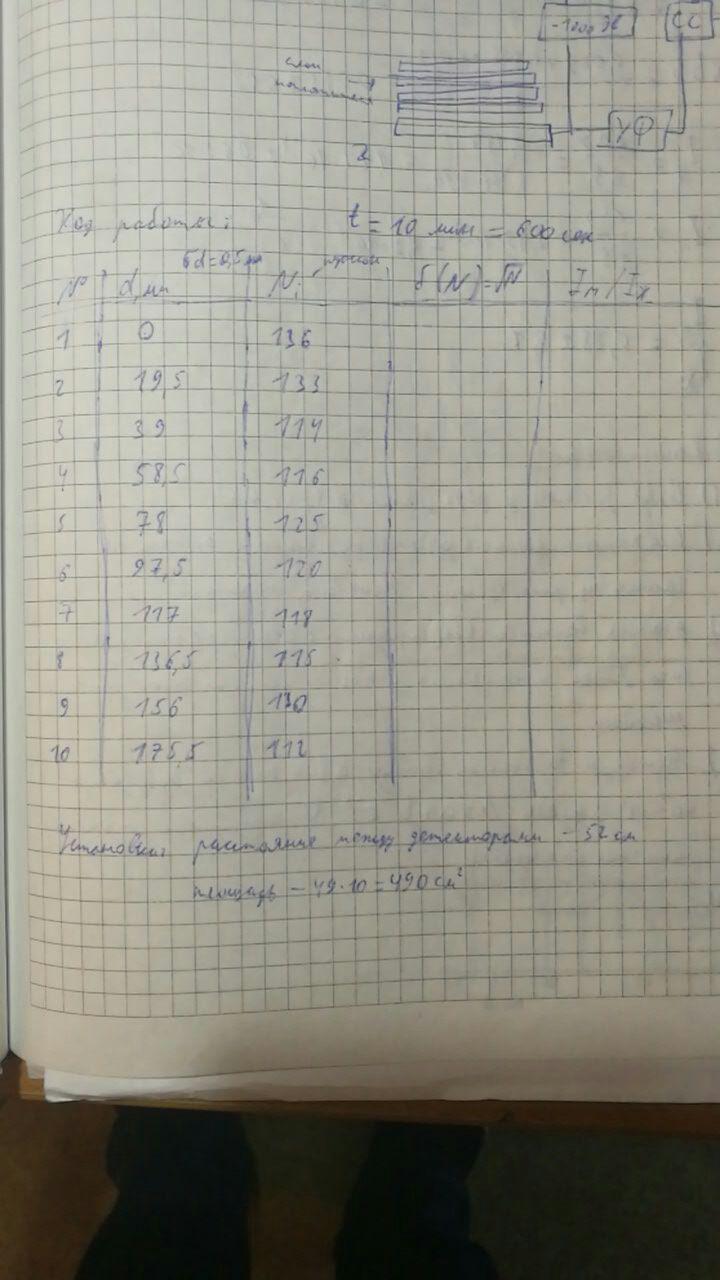 -1000 эВ СС
слои
поглотителя
УФ
2
Ход работы: t = 10 мин = 600 сек
δd=0,5мм
№ d, мм Ni δ(N)=√N
1 0 136
2 19,5 133
3 39 114
4 58,5 116
5 78 125
6 97,5 120
7 117 118
8 136,5 115
9 156 130
10 175,5 112
Установка: расстояние между детекторами - 52 см
площадь - 49·10 = 490 см²